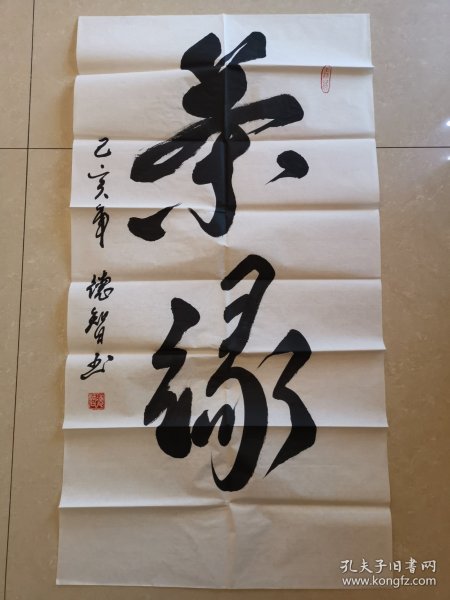 茶缘
己亥年 德智书
孔夫子旧书网
www.kongfz.com